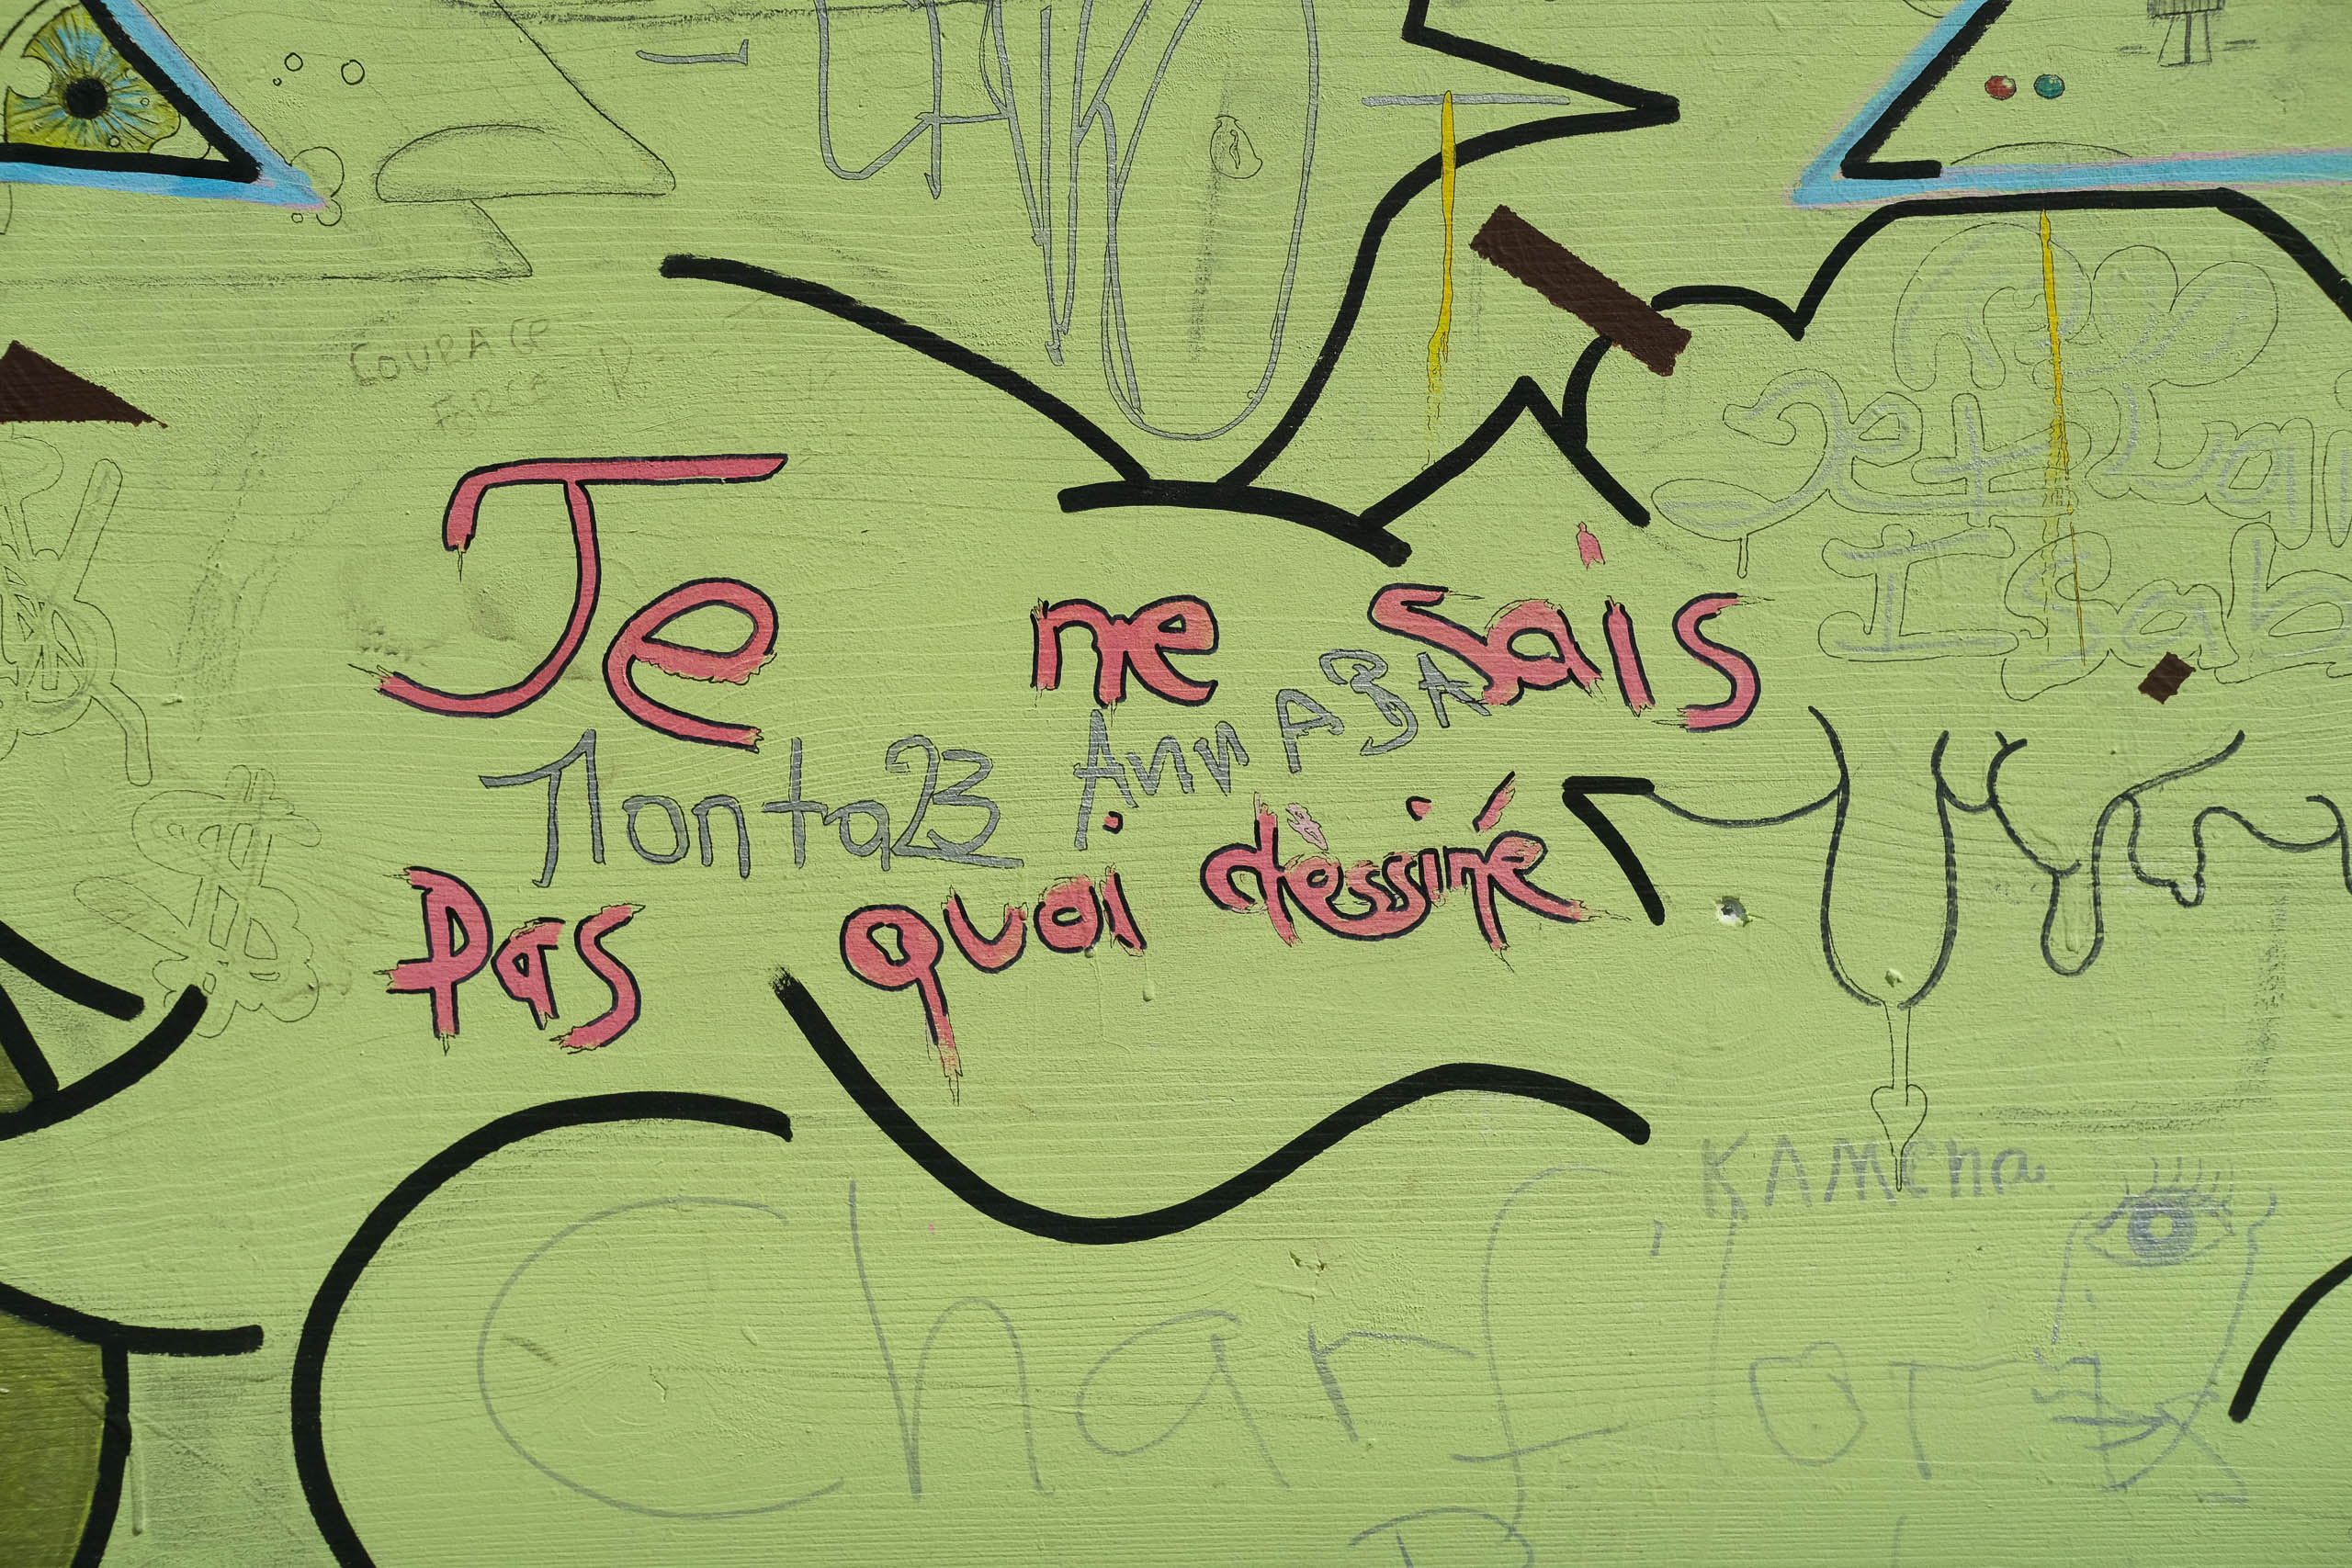 COURAGE
FORCE
Je ne sais
Monta23 AnnABA
Pas quoi dessiné
KAMena
Charflor